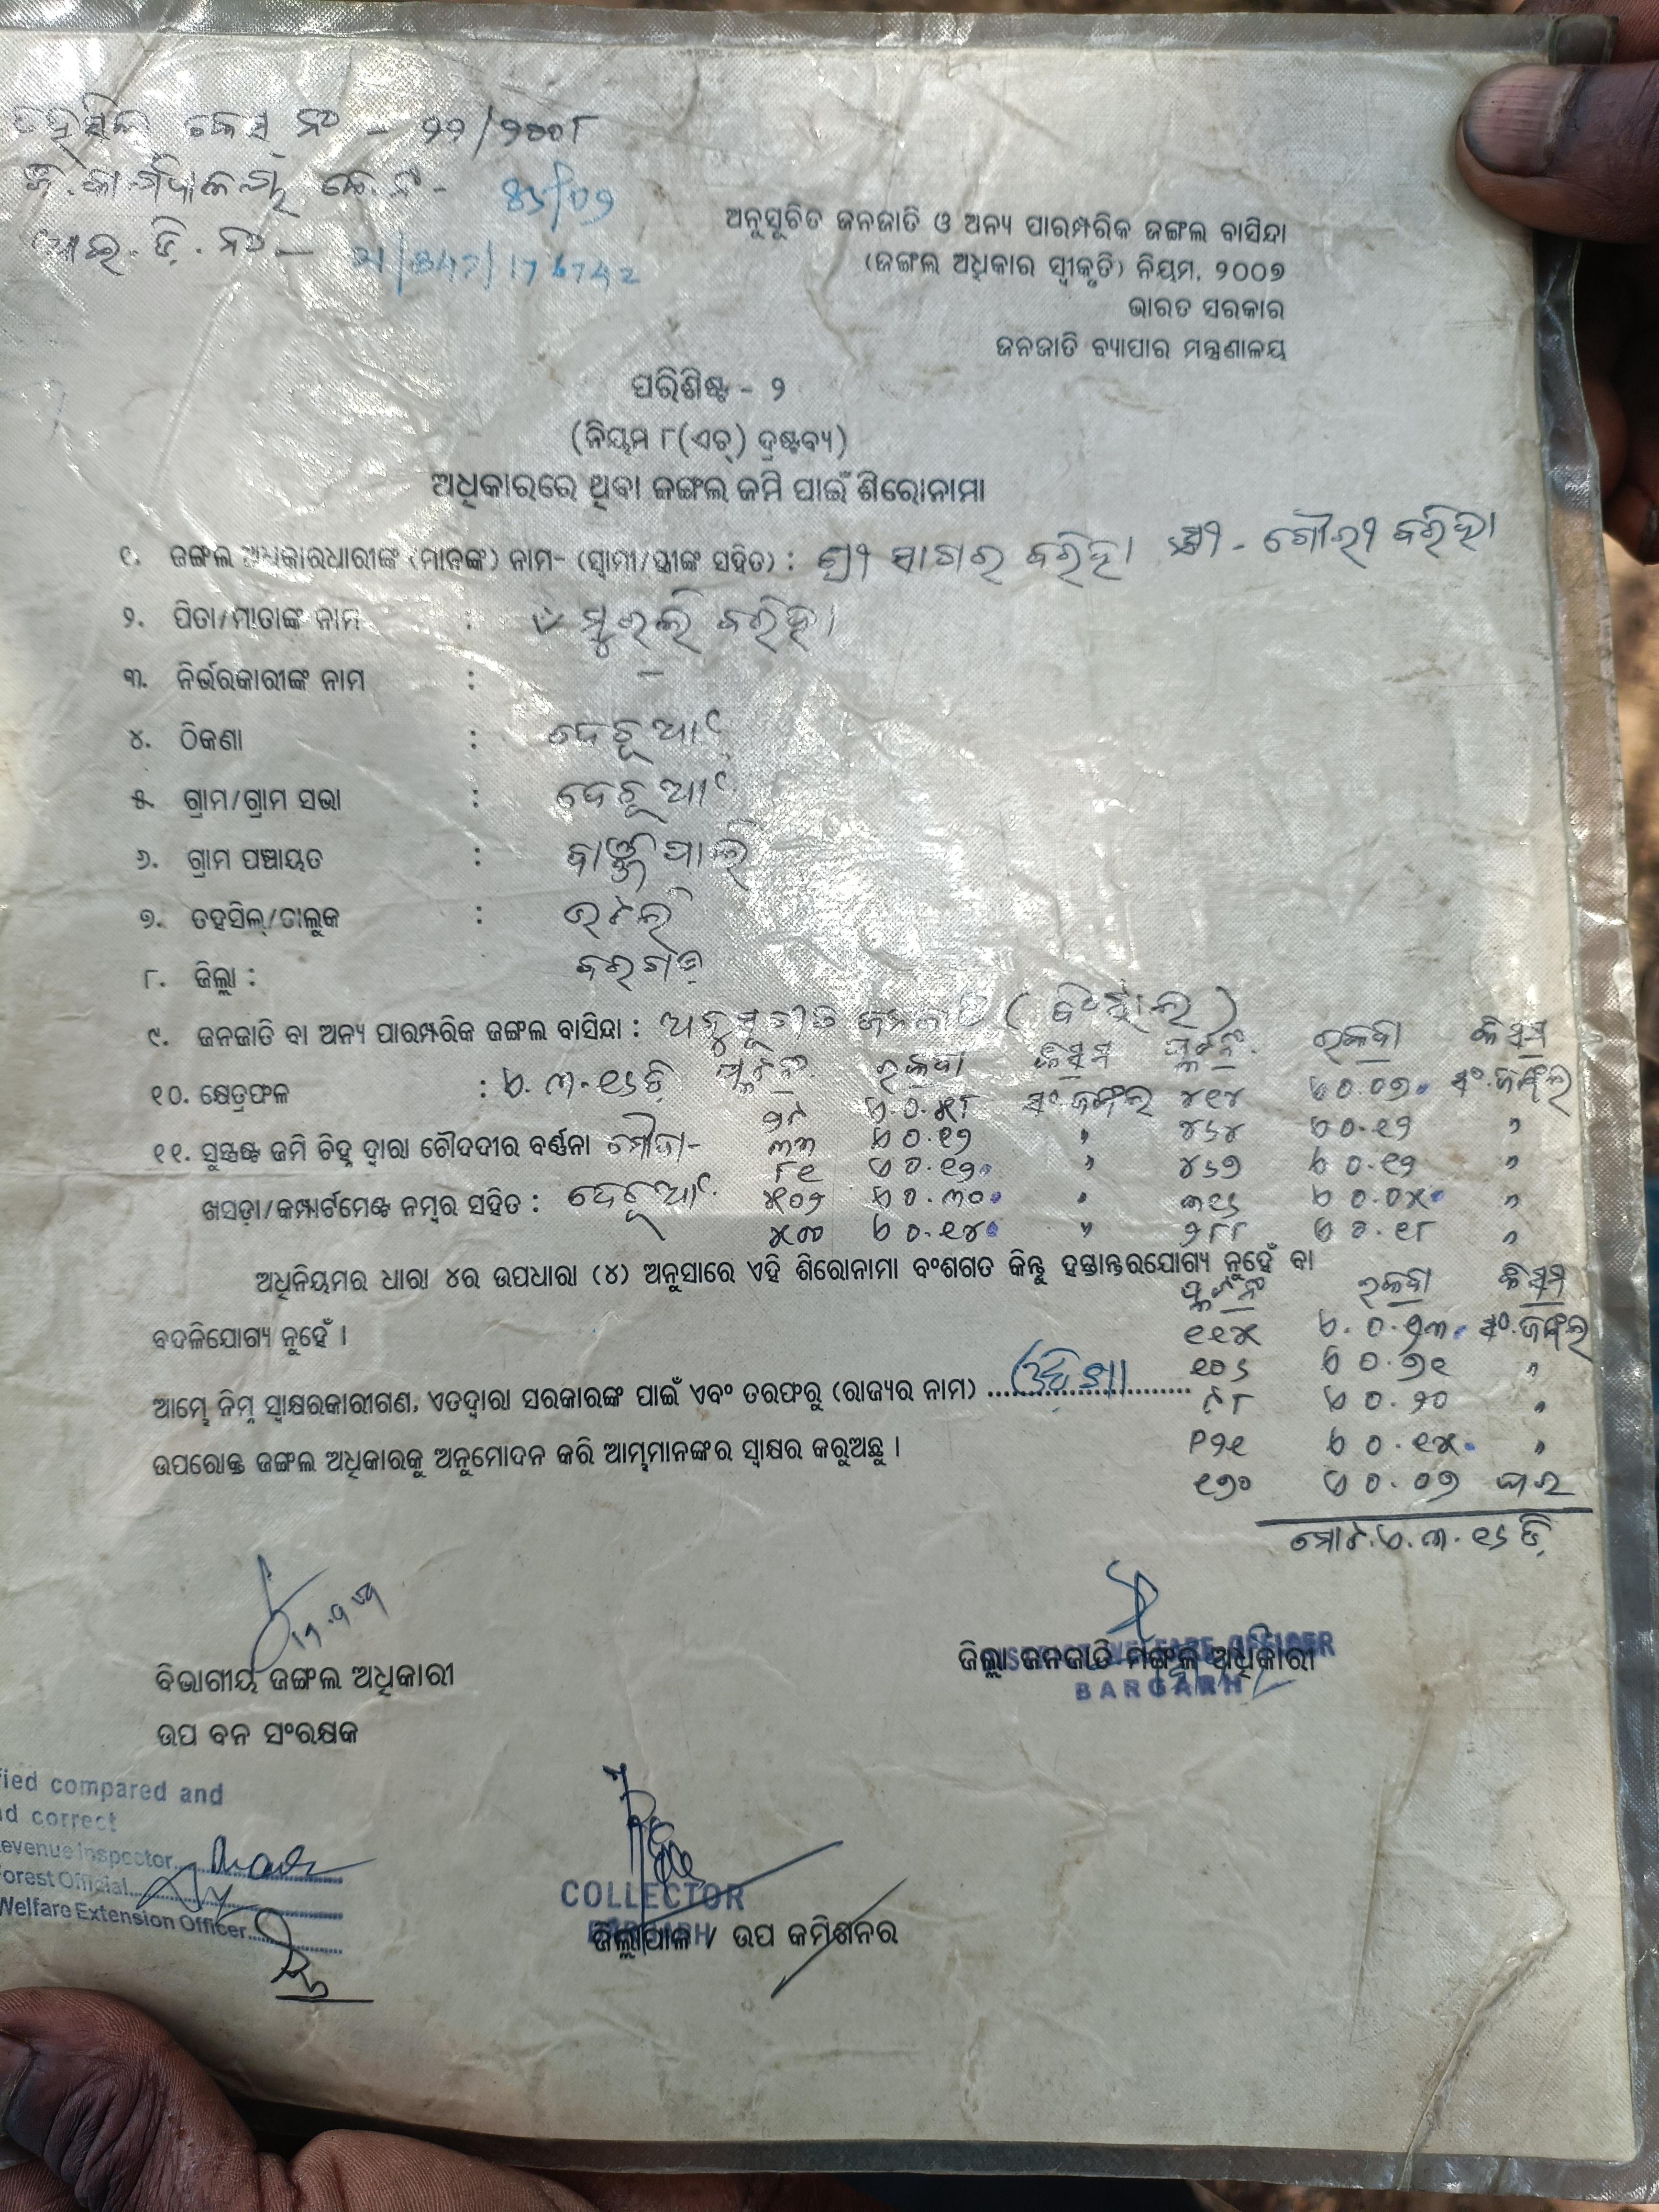 ତହସିଲ କେସ୍ ନଂ - ୨୨/୨୦୦୮
85/09
ଆଇ.ଡ଼ି. ନଂ — 21/342/176742
ଅନୁସୂଚିତ ଜନଜାତି ଓ ଅନ୍ୟ ପାରମ୍ପରିକ ଜଙ୍ଗଲ ବାସିନ୍ଦା
(ଜଙ୍ଗଲ ଅଧିକାର ସ୍ୱୀକୃତି) ନିୟମ, ୨୦୦୭
ଭାରତ ସରକାର
ଜନଜାତି ବ୍ୟାପାର ମନ୍ତ୍ରଣାଳୟ
ପରିଶିଷ୍ଟ - ୨
(ନିୟମ ୮(ଏଚ୍) ଦ୍ରଷ୍ଟବ୍ୟ)
ଅଧିକାରରେ ଥିବା ଜଙ୍ଗଲ ଜମି ପାଇଁ ଶିରୋନାମା
୧. ଜଙ୍ଗଲ ଅଧିକାରଧାରୀଙ୍କ (ମାନଙ୍କ) ନାମ- (ସ୍ୱାମୀ/ସ୍ତ୍ରୀଙ୍କ ସହିତ) : ଶ୍ରୀ ସାଗର ବରିହା ସ୍ତ୍ରୀ - ଗୌରୀ ବରିହା
୨. ପିତା/ମାତାଙ୍କ ନାମ : ମୁରଲି ବରିହା
୩. ନିର୍ଭରକାରୀଙ୍କ ନାମ : —
୪. ଠିକଣା : ଦେଚୂଆଁ
୫. ଗ୍ରାମ/ଗ୍ରାମ ସଭା : ଦେଚୂଆଁ
୬. ଗ୍ରାମ ପଞ୍ଚାୟତ :
୭. ତହସିଲ୍/ତାଲୁକ : ଭଟଲି
୮. ଜିଲ୍ଲା : ବରଗଡ଼
୯. ଜନଜାତି ବା ଅନ୍ୟ ପାରମ୍ପରିକ ଜଙ୍ଗଲ ବାସିନ୍ଦା : ଅନୁସୂଚୀତ ଜନଜାତି (ବିଂଝାଲ)
୧୦. କ୍ଷେତ୍ରଫଳ : ଏ.୩.୧୬ ଡି ପ୍ଲଟ ନଂ ରକବା କିସମ ପ୍ଲଟ ନଂ ରକବା କିସମ
୨୯ ଏ ୦.୪୮ ସଂ.ଜଙ୍ଗଲ ୪୧୪ ଏ ୦.୦୭ ସଂ.ଜଙ୍ଗଲ
୧୧. ସୁସ୍ପଷ୍ଟ ଜମି ଚିହ୍ନ ଦ୍ୱାରା ଚୌଦଦୀର ବର୍ଣ୍ଣନା ମୌଜା- ୩୩ ଏ ୦.୧୨ " ୪୬୪ ଏ ୦.୧୨ "
୮୧ ଏ ୦.୧୨ " ୪୬୭ ଏ ୦.୧୨ "
ଖସଡ଼ା/କମ୍ପାର୍ଟମେଣ୍ଟ ନମ୍ବର ସହିତ : ଦେଚୂଆଁ ୫୦୨ ଏ ୦.୩୦ " ୩୧୬ ଏ ୦.୦୫ "
୫୦୦ ଏ ୦.୧୪ " ୨୮୮ ଏ ୦.୧୮ "
ଅଧିନିୟମର ଧାରା ୪ର ଉପଧାରା (୪) ଅନୁସାରେ ଏହି ଶିରୋନାମା ବଂଶଗତ କିନ୍ତୁ ହସ୍ତାନ୍ତରଯୋଗ୍ୟ ନୁହେଁ ବା
ପ୍ଲଟ ନଂ ରକବା କିସମ
ବଦଳିଯୋଗ୍ୟ ନୁହେଁ । ୧୧୫ ଏ.୦.୨୩ ସଂ.ଜଙ୍ଗଲ
୧୦୬ ଏ ୦.୭୧ "
ଆମ୍ଭେ ନିମ୍ନ ସ୍ୱାକ୍ଷରକାରୀଗଣ, ଏତଦ୍ୱାରା ସରକାରଙ୍କ ପାଇଁ ଏବଂ ତରଫରୁ (ରାଜ୍ୟର ନାମ) ଓଡ଼ିଶା ୯୮ ଏ ୦.୨୦ "
ଏ ୦.୧୫ "
ଉପରୋକ୍ତ ଜଙ୍ଗଲ ଅଧିକାରକୁ ଅନୁମୋଦନ କରି ଆମ୍ଭମାନଙ୍କର ସ୍ୱାକ୍ଷର କରୁଅଛୁ ।
୧୭୦ ଏ ୦.୦୭ ଘର
ମୋଟ.ଏ.୩.୧୬ ଡି
ବିଭାଗୀୟ ଜଙ୍ଗଲ ଅଧିକାରୀ
ଉପ ବନ ସଂରକ୍ଷକ
DISTRICT WELFARE OFFICER
ଜିଲ୍ଲା ଜନଜାତି ମଙ୍ଗଳ ଅଧିକାରୀ
BARGARH
fied compared and
nd correct
evenue Inspector
orest Official
Welfare Extension Officer
COLLECTOR
BARGARH
ଜିଲ୍ଲାପାଳ / ଉପ କମିଶନର